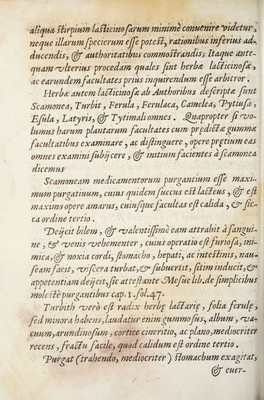 aliqua stirpium lacticinosarum minimè convenire videtur,
neque illarum specierum esse potest, rationibus inferius ad,
ducendis, & authoritatibus commostrandis; Itaque ante-
quam ulterius procedam qualis sint herbæ lacticinosæ,
ac earundem facultates prius inquirendum esse arbitror.
Herbæ autem lacticinosæ ab Authoribus descriptæ sunt
Scamonea, Turbit, Ferula, Ferulaca, Camelea, Pytiusa,
Esula, Latyris, & Tytimali omnes. Quapropter si vo-
lumus harum plantarum facultates cum prædictæ gummæ
facultatibus examinare, ac distinguere, operæ pretium eas
omnes examini subijcere, & initium facientes à scamonea
dicemus
Scamoneam medicamentorum purgantium esse maxi-
mum purgativum, cuius quidem succus est lacteus, & est
maximo opere amarus, cuiusque facultas est calida, & sic-
ca ordine tertio.
Deijcit bilem, & valentissimè eam attrahit à sangui-
ne, & venis vehementer, cuius operatio est furiosa, ini-
mica, & noxia cordi, stomacho, hepati, ac intestinis, nau-
seam facit, viscera turbat, & subvertit, sitim inducit, &
appetentiam deijcit, sic attestante Mesue lib. de simplicibus
molestè purgantibus cap. 1. fol. 47.
Turbith verò est radix herbæ lactariæ, folia ferulæ,
sed minora habens, laudatur enim gummosus, albus, va-
cuum, arundinosum, cortice cineritio, ac plano, mediocriter
recens, fractu facile, quod calidum est ordine tertio.
Purgat (trahendo, mediocriter) stomachum exagitat,
& ever-